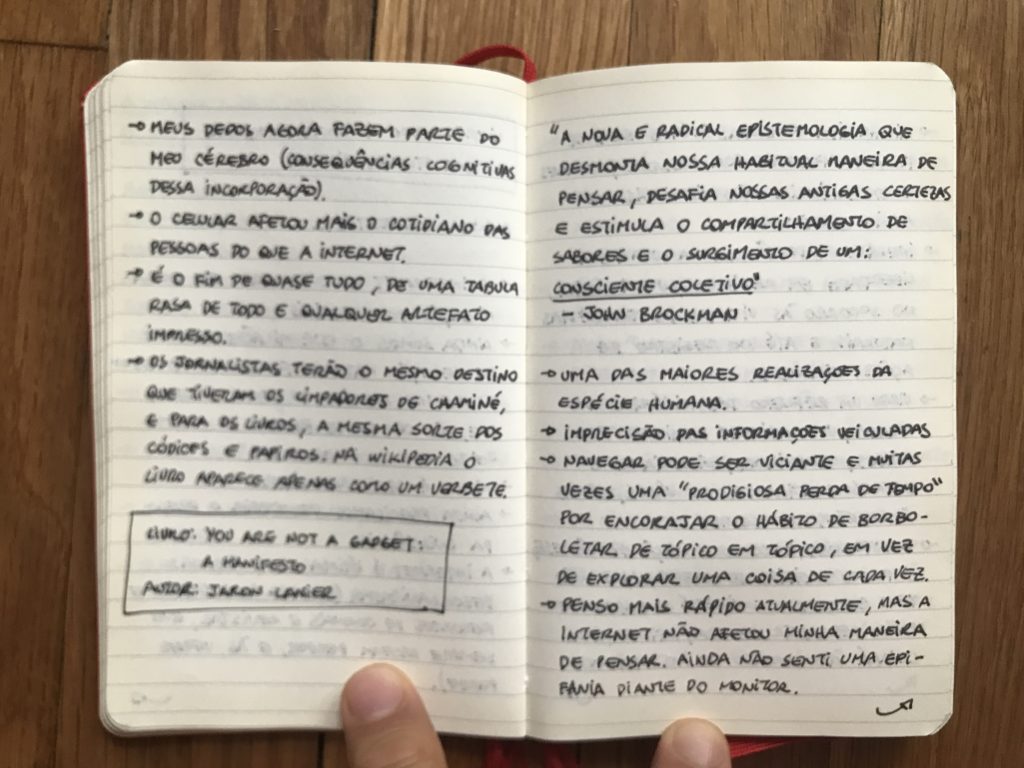 → MEUS DEDOS AGORA FAZEM PARTE DO
MEU CÉREBRO (CONSEQUÊNCIAS COGNITIVAS
DESSA INCORPORAÇÃO).
→ O CELULAR AFETOU MAIS O COTIDIANO DAS
PESSOAS DO QUE A INTERNET.
→ É O FIM DE QUASE TUDO, DE UMA TABULA
RASA DE TODO E QUALQUER ARTEFATO
IMPRESSO.
→ OS JORNALISTAS TERÃO O MESMO DESTINO
QUE TIVERAM OS LIMPADORES DE CHAMINÉ,
E PARA OS LIVROS, A MESMA SORTE DOS
CÓDICES E PAPIROS. NA WIKIPEDIA O
LIVRO APARECE APENAS COMO UM VERBETE.
LIVRO: YOU ARE NOT A GADGET:
A MANIFESTO
AUTOR: JARON LANIER
"A NOVA E RADICAL EPISTEMOLOGIA QUE
DESMONTA NOSSA HABITUAL MANEIRA DE
PENSAR, DESAFIA NOSSAS ANTIGAS CERTEZAS
E ESTIMULA O COMPARTILHAMENTO DE
SABORES E O SURGIMENTO DE UM:
CONSCIENTE COLETIVO"
- JOHN BROCKMAN
→ UMA DAS MAIORES REALIZAÇÕES DA
ESPÉCIE HUMANA.
→ IMPRECISÃO DAS INFORMAÇÕES VEICULADAS
→ NAVEGAR PODE SER VICIANTE E MUITAS
VEZES UMA "PRODIGIOSA PERDA DE TEMPO"
POR ENCORAJAR O HÁBITO DE BORBO-
LETAR DE TÓPICO EM TÓPICO, EM VEZ
DE EXPLORAR UMA COISA DE CADA VEZ.
→ PENSO MAIS RÁPIDO ATUALMENTE, MAS A
INTERNET NÃO AFETOU MINHA MANEIRA
DE PENSAR. AINDA NÃO SENTI UMA EPI-
FÂNIA DIANTE DO MONITOR.